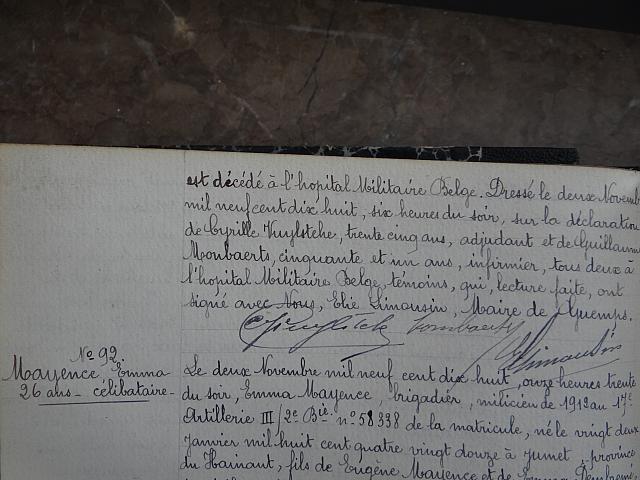 est décédé à l'hopital Militaire Belge. Dressé le deux Novembre
mil neuf cent dix huit, six heures du soir, sur la déclaration
de Cyrille Kuylstche, trente cinq ans, adjudant et de Guillaume
Mombaerts, cinquante et un ans, infirmier, tous deux à
l'hopital Militaire Belge, témoins, qui, lecture faite, ont
signé avec Nous, Elie Limousin, Maire de Guemps.
Mombaerts
Limousin
N° 92.
Mayence Emma
26 ans - célibataire -
Le deux Novembre mil neuf cent dix huit, onze heures trente
du soir, Emma Mayence, brigadier, milicien de 1912 au 17e
Artillerie III/2e Bie n° 58338 de la matricule, né le vingt deux
janvier mil huit cent quatre vingt douze à Jumet, province
du Hainaut, fils de Eugène Mayence et de Emma